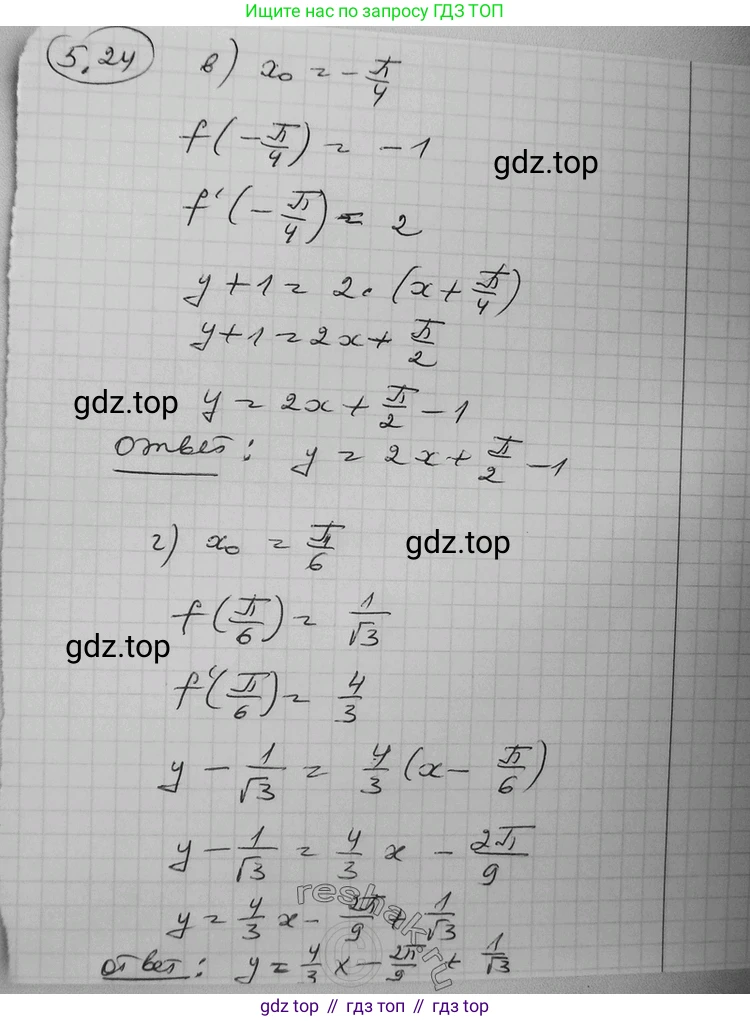 Ищите нас по запросу ГДЗ ТОП
5.24 в) x₀ = -π/4
f(-π/4) = -1
gdz.top
f'(-π/4) = 2
y+1 = 2·(x+π/4)
y+1 = 2x+π/2
gdz.top y = 2x+π/2-1
ответ: y = 2x+π/2-1
г) x₀ = π/6 gdz.top
f(π/6) = 1/√3
gdz.top
f'(π/6) = 4/3
y - 1/√3 = 4/3 (x - π/6)
y - 1/√3 = 4/3 x - 2π/9
reshak.ru
y = 4/3 x - 2π/9 + 1/√3
ответ: y = 4/3 x - 2π/9 + 1/√3
gdz top // гдз топ // gdz top // гдз топ